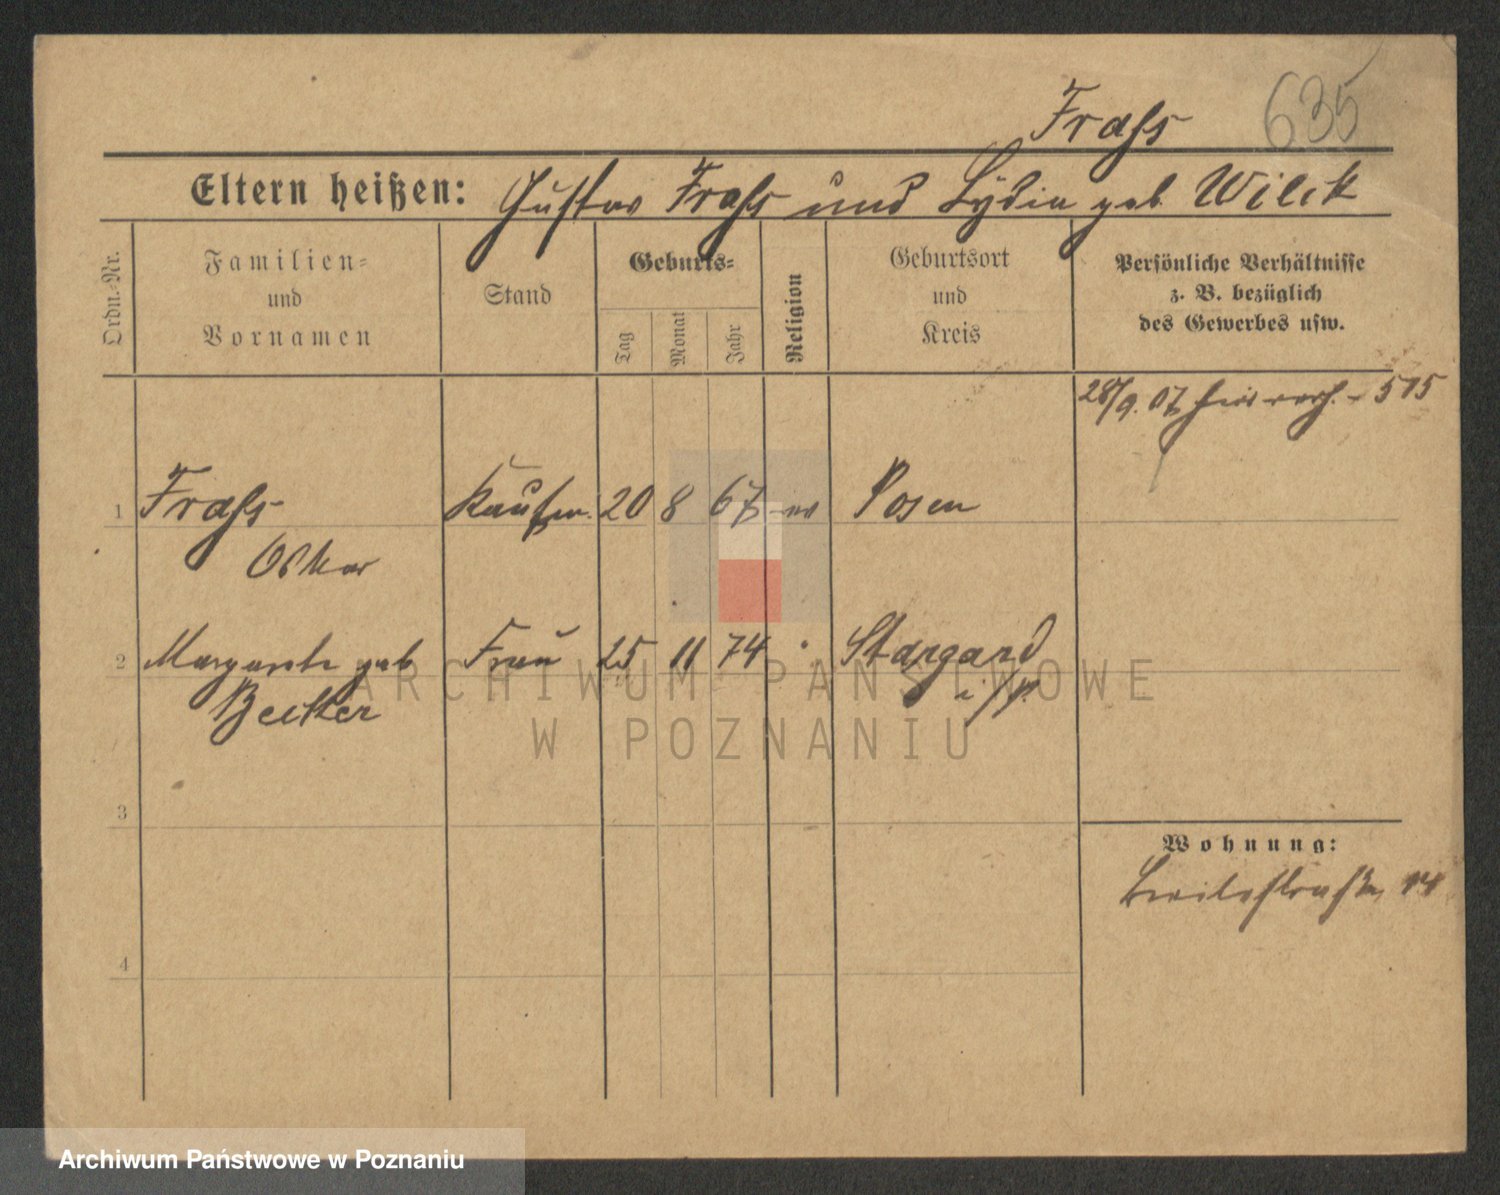 Frahs 635
Eltern heißen: Gustav Frahs und Lydia geb. Wilck
Ordn.-Nr.
Familien-
und
Vornamen
Stand
Geburts-
Tag
Monat
Jahr
Religion
Geburtsort
und
Kreis
Persönliche Verhältnisse
z. B. bezüglich
des Gewerbes usw.
28/9. 07 hier verh. - 515
1 Frahs Kaufm. 20 8 67 ev Posen
Oskar
2 Margarete geb Frau 25 11 74 Stargard
Becker i/P.
3
Wohnung:
Breitestraße 14
4
ARCHIWUM PAŃSTWOWE
W POZNANIU
Archiwum Państwowe w Poznaniu